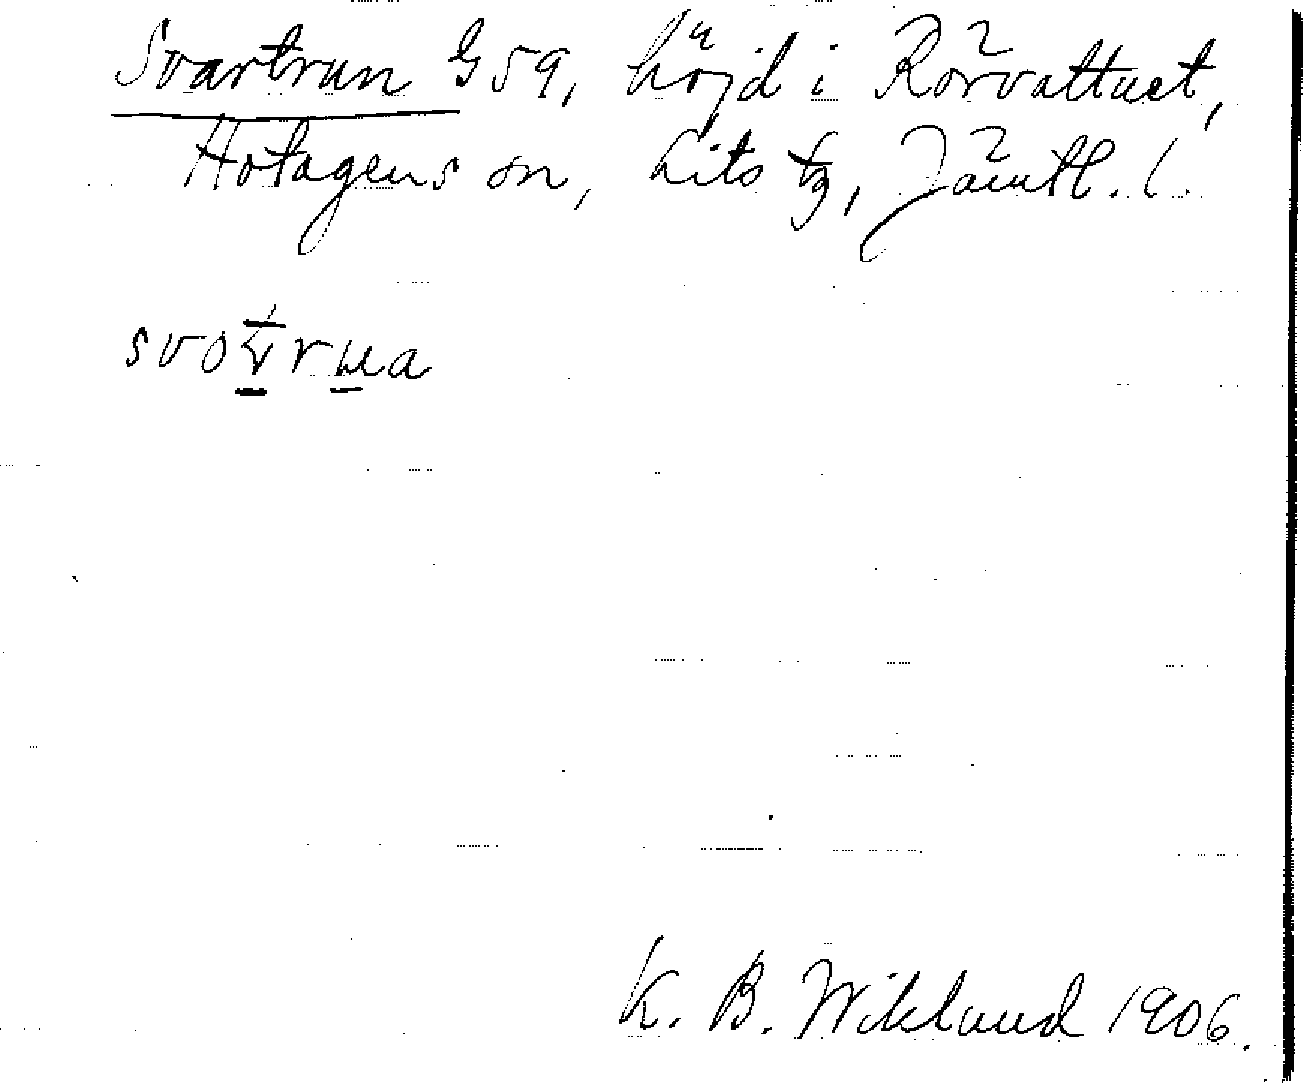 Svartrun G59, höjd i Rörvattnet,
Hotagens sn, Lits tg, Jämtl. l.
svo t̠rṵa
K. B. Wiklund 1906.